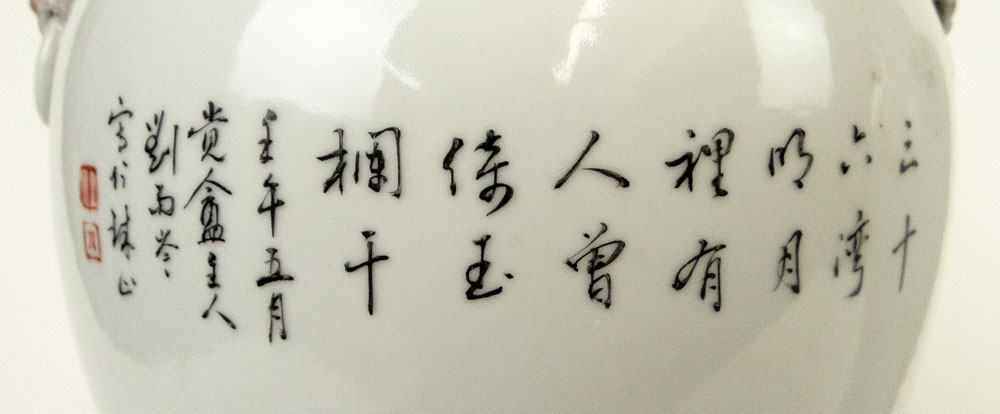 三十
六湾
明月
裡有
人曾
倚玉
欄干
壬午五月
觉盦主人
劉雨岑
写於珠山